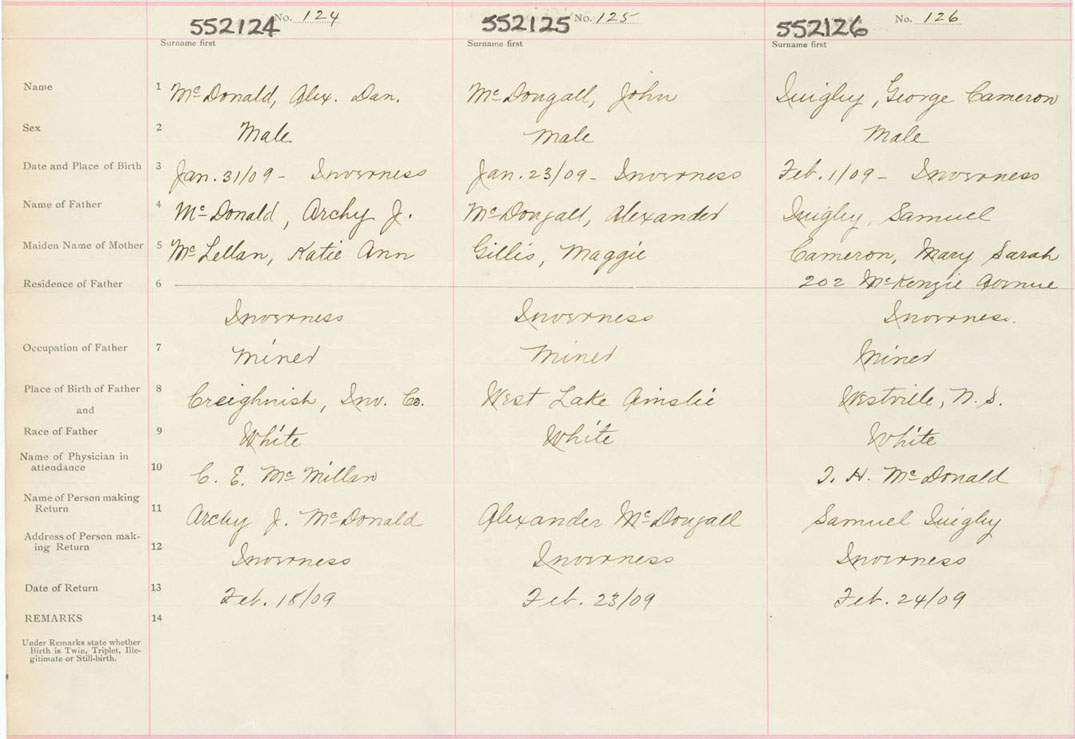 552124 No. 124 552125 No. 125 552126 No. 126
Surname first Surname first Surname first
Name 1 McDonald, Alex. Dan. McDougall, John Quigley, George Cameron
Sex 2 Male Male Male
Date and Place of Birth 3 Jan. 31/09 - Inverness Jan. 23/09 - Inverness Feb. 1/09 - Inverness
Name of Father 4 McDonald, Archy J. McDougall, Alexander Quigley, Samuel
Maiden Name of Mother 5 McLellan, Katie Ann Gillis, Maggie Cameron, Mary Sarah
Residence of Father 6 202 McKenzie Avenue
Inverness Inverness Inverness.
Occupation of Father 7 Miner Miner Miner
Place of Birth of Father 8 Creighnish, Inv. Co. West Lake Ainslie Westville, N.S.
and
Race of Father 9 White White White
Name of Physician in
attendance 10 C. E. McMillan T. H. McDonald
Name of Person making
Return 11 Archy J. McDonald Alexander McDougall Samuel Quigley
Address of Person mak-
ing Return 12 Inverness Inverness Inverness
Date of Return 13 Feb. 18/09 Feb. 23/09 Feb. 24/09
REMARKS 14
Under Remarks state whether
Birth is Twin, Triplet, Ille-
gitimate or Still-birth.